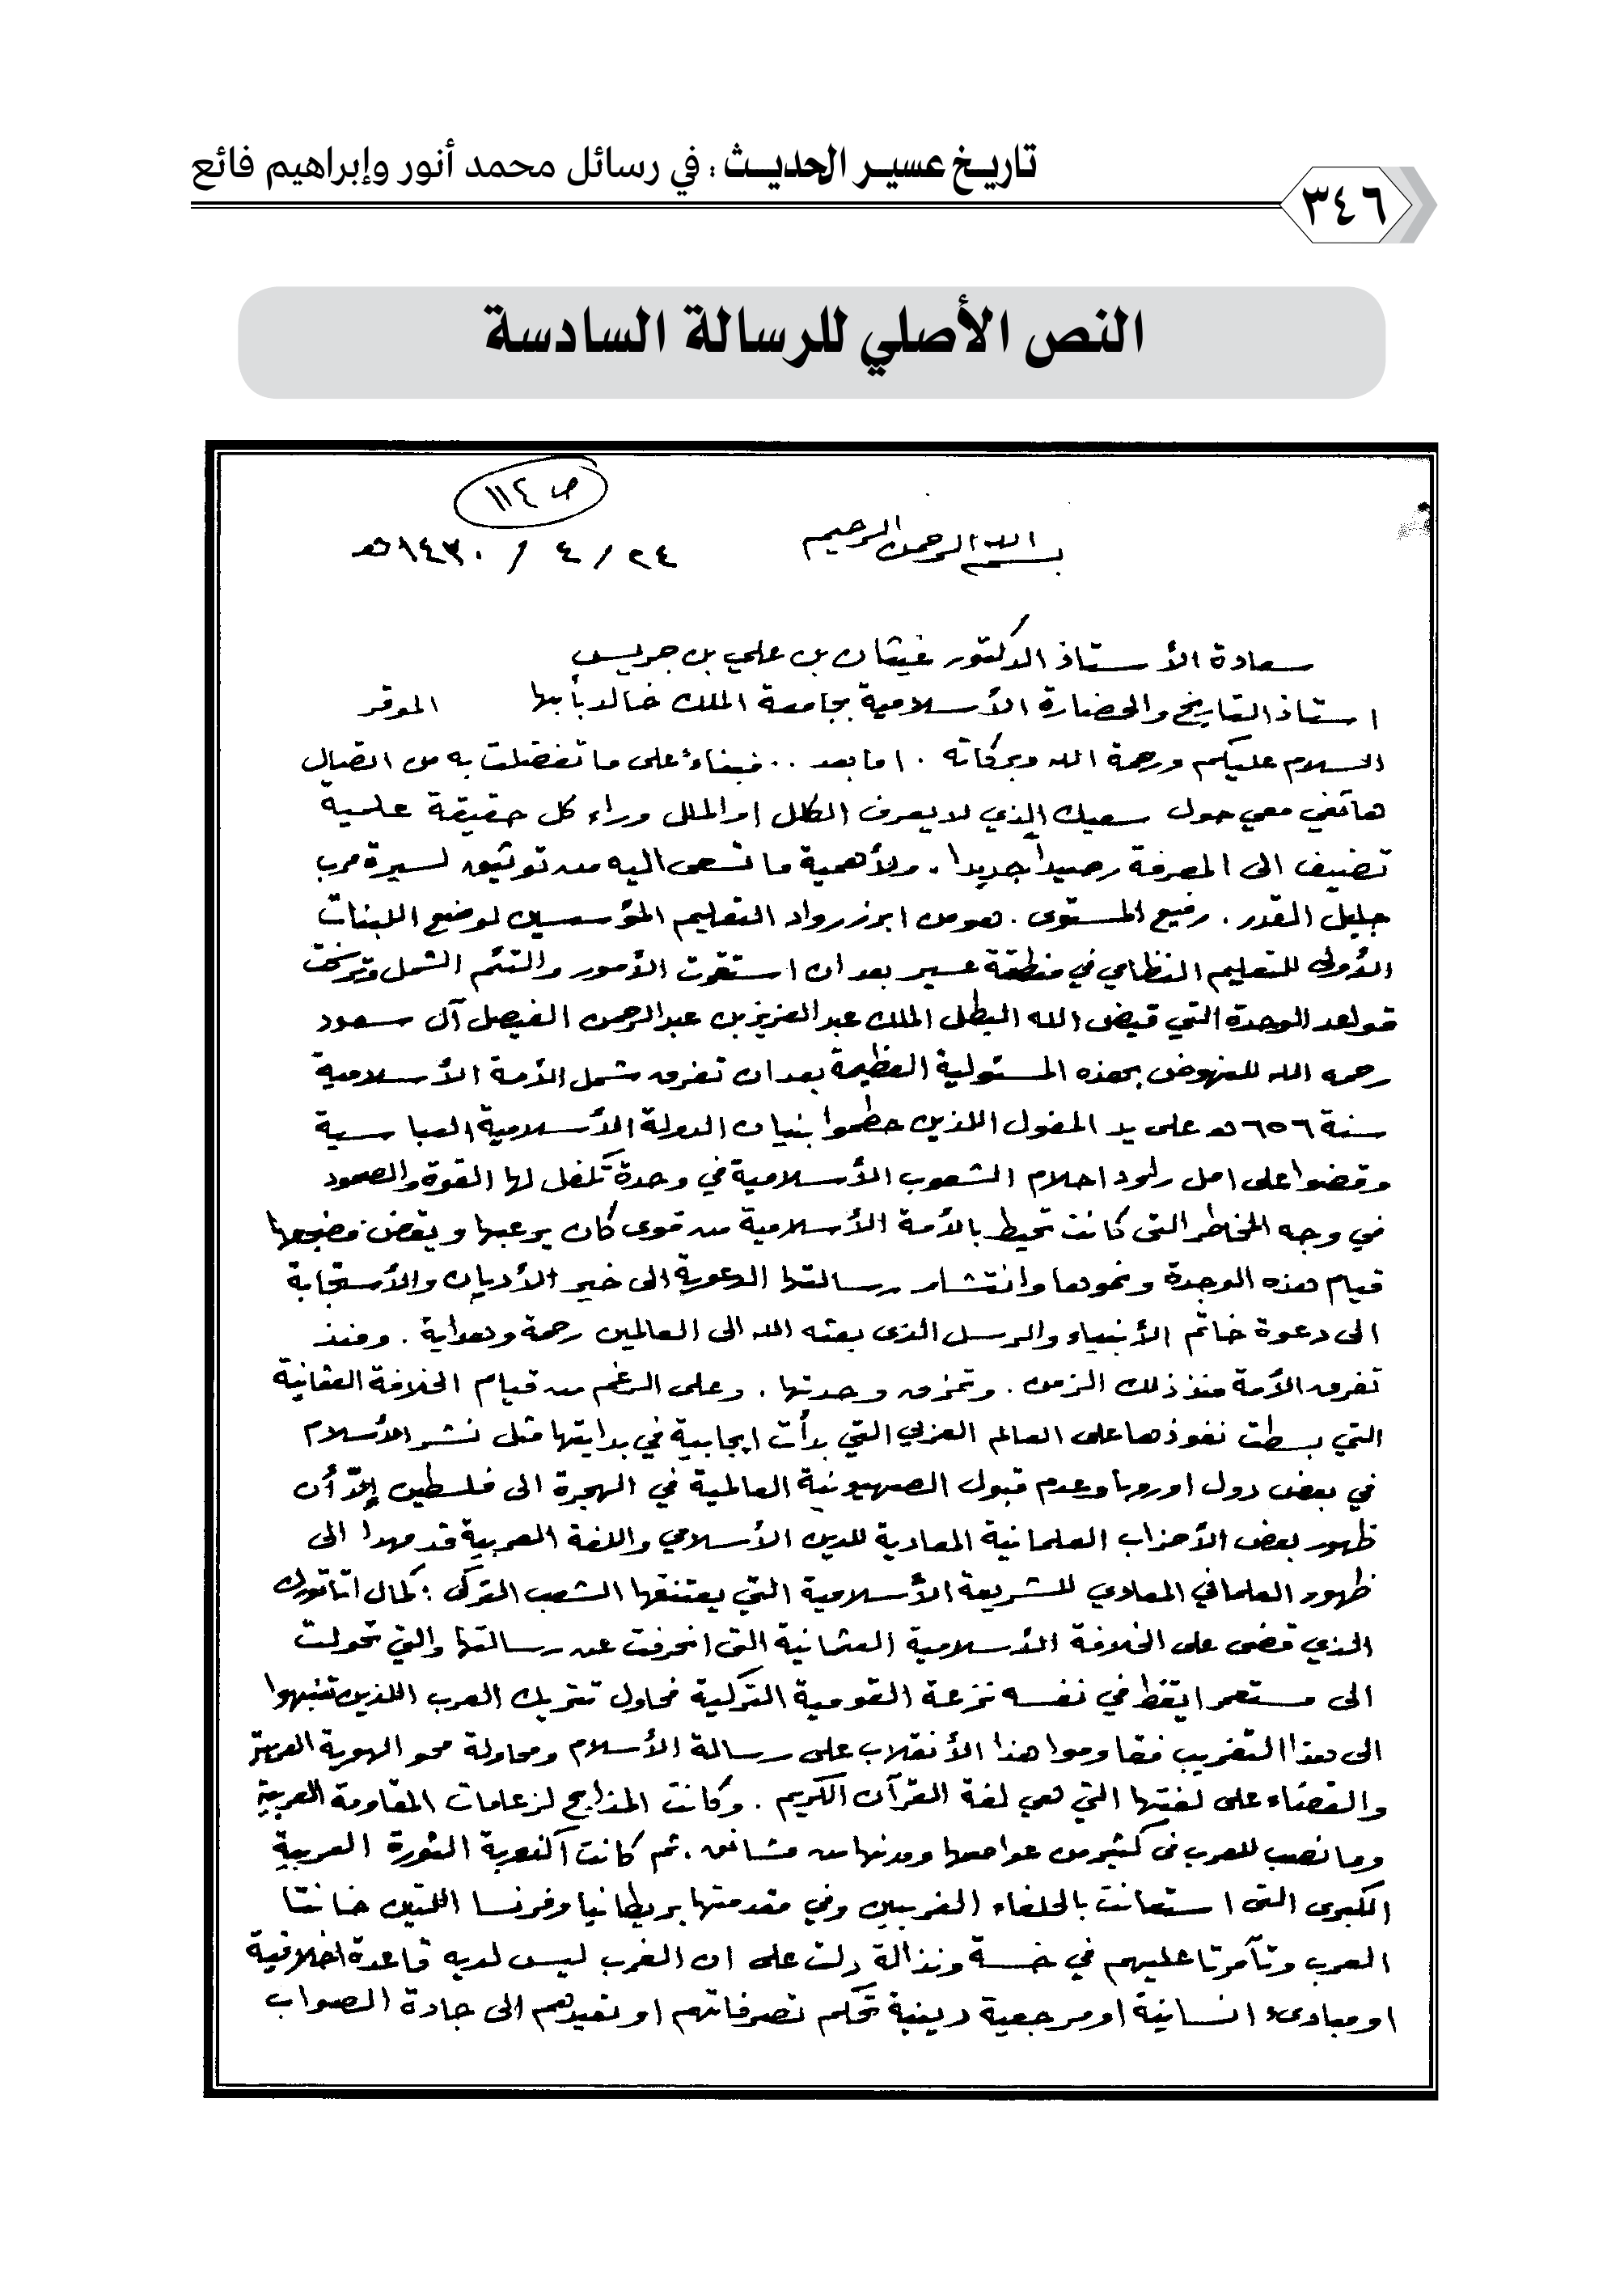 تاريخ عسير الحديث : في رسائل محمد أنور وإبراهيم فائع
٣٤٦
النص الأصلي للرسالة السادسة
ص ١١٤
بسم الله الرحمن الرحيم
٢٤ / ٤ / ١٤٣٠هـ
سعادة الأستاذ الدكتور غيثان بن علي بن جريس
استاذ التاريخ والحضارة الأسلامية بجامعة الملك خالد بأبها الموقر
السلام عليكم ورحمة الله وبركاته . اما بعد .. فبناءً على ما تفضلت به من اتصال
هاتفي معي حول سعيك الذي لا يعرف الكلل او الملل وراء كل حقيقة علمية
تضيف الى المعرفة رصيداً جديدا . ولأهمية ما تسعى اليه من توثيق لسيرة مرب
جليل القدر . رفيع المستوى . هو من ابرز رواد التعليم المؤسسين لوضع اللبنات
الأولى للتعليم النظامي في منطقة عسير بعد ان استقرت الأمور والتئم الشمل وترسخت
قواعد الوحدة التي قيض الله البطل الملك عبد العزيز بن عبد الرحمن الفيصل آل سعود
رحمه الله للنهوض بهذه المسئولية العظيمة بعد ان تفرق شمل الأمة الأسلامية
سنة ٦٥٦هـ على يد المغول اللذين حطموا بنيان الدولة الأسلامية العباسية
وقضوا على امل راود احلام الشعوب الأسلامية في وحدة تكفل لها القوة والصمود
في وجه المخاطر التى كانت تحيط بالأمة الأسلامية من قوى كان يرعبها ويقض مضجعها
قيام هذه الوحدة ونموها وانتشار رسالتها الدعوية الى خير الأديان والأستجابة
الى دعوة خاتم الأنبياء والرسل الذى بعثه الله الى العالمين رحمة وهداية . ومنذ
تفرق الأمة منذ ذلك الزمن . وتمزق وحدتها . وعلى الرغم من قيام الخلافة العثمانية
التي بسطت نفوذها على العالم العربي التي بدأت ايجابية في بدايتها مثل نشر الأسلام
في بعض دول اوروبا وعدم قبول الصهيونية العالمية في الهجرة الى فلسطين إلاّ أن
ظهور بعض الأحزاب العلمانية المعادية للدين الأسلامي واللغة العربية قد مهدا الى
ظهور العلماني المعادي للشريعة الأسلامية التي يعتنقها الشعب التركى : كمال اتاتورك
الذي قضى على الخلافة الأسلامية العثمانية التى انحرفت عن رسالتها والتي تحولت
الى مستعمر ايقظ في نفسه نزعة القومية التركية فحاول تتريك العرب اللذين تنبهوا
الى هذا التغريب فقاوموا هذا الأنقلاب على رسالة الأسلام ومحاولة محو الهوية العربية
والقضاء على لغتها التي هي لغة القرآن الكريم . وكانت المذابح لزعامات المقاومة العربية
وما نصب للعرب في كثير من عواصمها ومدنها من مشانق . ثم كانت اكذوبة الثورة العربية
الكبرى التى استعانت بالحلفاء الغربيين وفي مقدمتها بريطانيا وفرنسا اللتين خانتا
العرب وتآمرتا عليهم في خسة ونذالة دلت على ان الغرب ليس لديه قاعدة اخلاقية
او مبادىء انسانية او مرجعية دينية تحكم تصرفاتهم او تعيدهم الى جادة الصواب